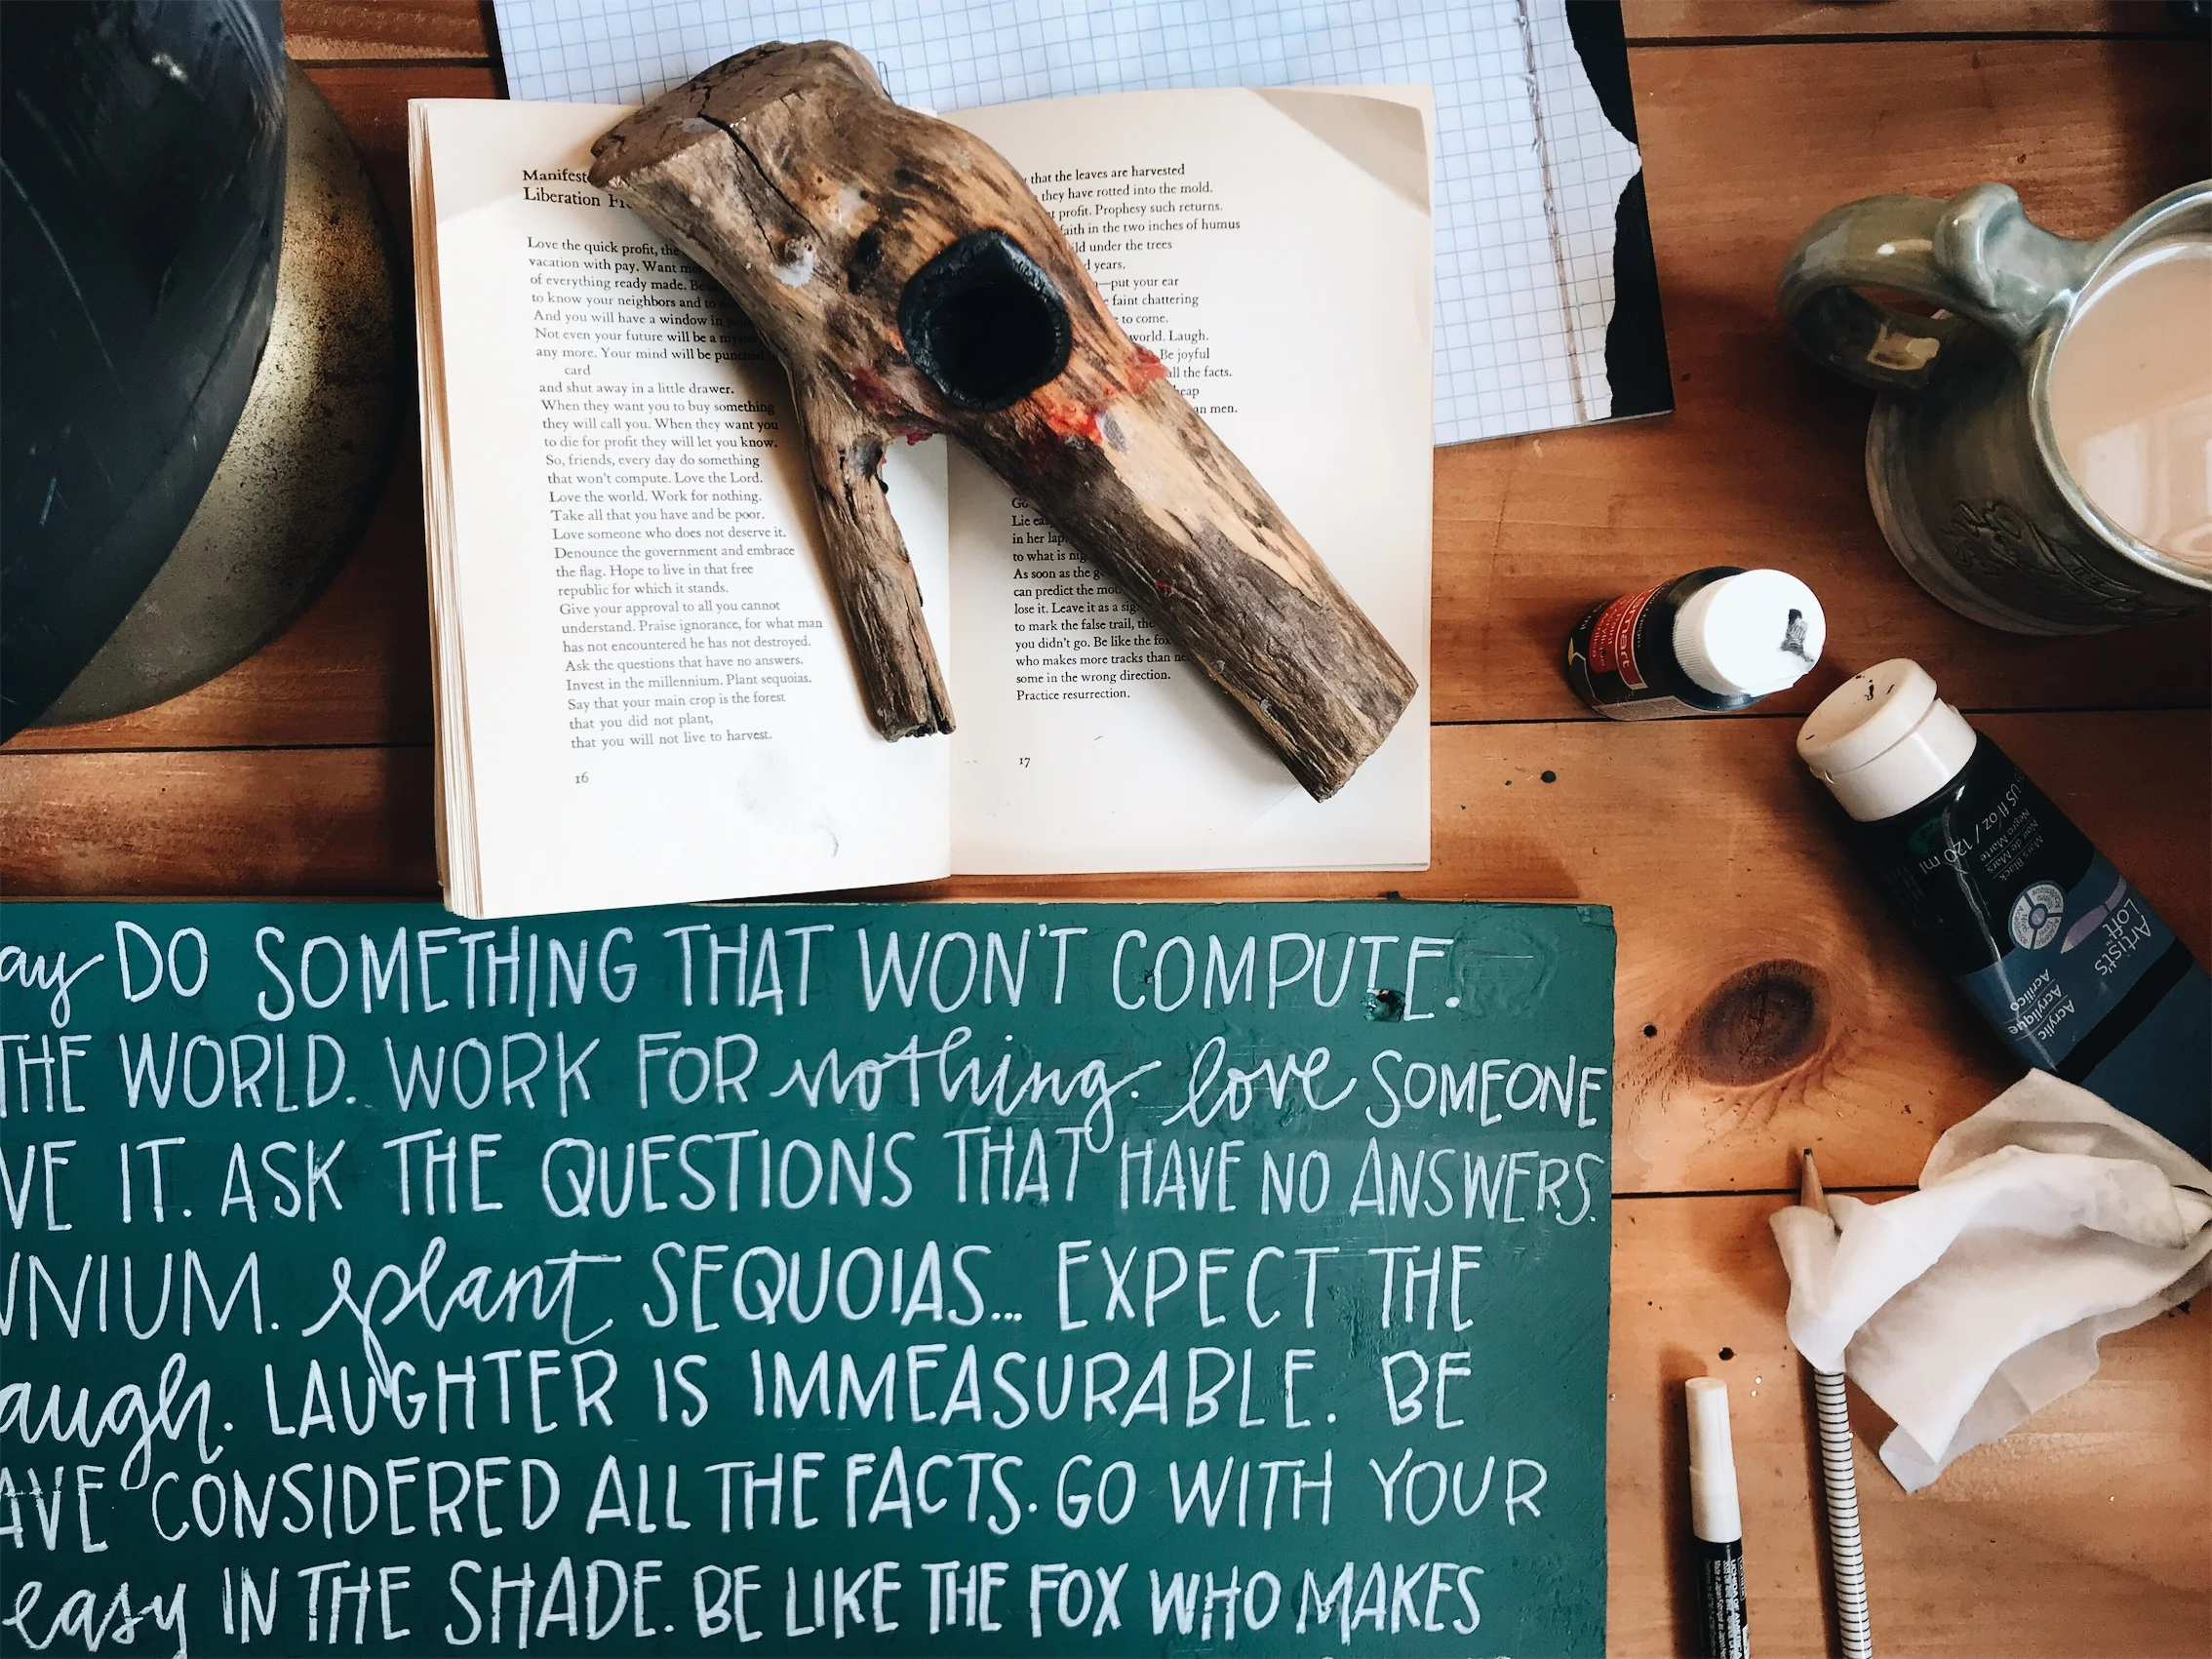 Manifest
Liberation Fr
Love the quick profit, the
vacation with pay. Want
of everything ready made. Be
to know your neighbors and to
And you will have a window in
Not even your future will be a mystery
any more. Your mind will be punched
card
and shut away in a little drawer.
When they want you to buy something
they will call you. When they want you
to die for profit they will let you know.
So, friends, every day do something
that won't compute. Love the Lord.
Love the world. Work for nothing.
Take all that you have and be poor.
Love someone who does not deserve it.
Denounce the government and embrace
the flag. Hope to live in that free
republic for which it stands.
Give your approval to all you cannot
understand. Praise ignorance, for what man
has not encountered he has not destroyed.
Ask the questions that have no answers.
Invest in the millennium. Plant sequoias.
Say that your main crop is the forest
that you did not plant,
that you will not live to harvest.
16
that the leaves are harvested
they have rotted into the mold.
profit. Prophesy such returns.
faith in the two inches of humus
under the trees
years.
—put your ear
faint chattering
to come.
world. Laugh.
Be joyful
all the facts.
men.
Go
Lie
in her lap.
to what is
As soon as the
can predict the
lose it. Leave it as a
to mark the false trail, the
you didn't go. Be like the fox
who makes more tracks than
some in the wrong direction.
Practice resurrection.
17
ay DO SOMETHING THAT WON'T COMPUTE.
THE WORLD. WORK FOR nothing. love SOMEONE
VE IT. ASK THE QUESTIONS THAT HAVE NO ANSWERS.
NNIUM. plant SEQUOIAS... EXPECT THE
augh. LAUGHTER IS IMMEASURABLE. BE
AVE CONSIDERED ALL THE FACTS. GO WITH YOUR
easy IN THE SHADE. BE LIKE THE FOX WHO MAKES
US fl oz / 120 ml
Mars Black
Noir de Mars
Negro Marte
Artist's
Loft
Acrylic
Acrylique
Acrílico